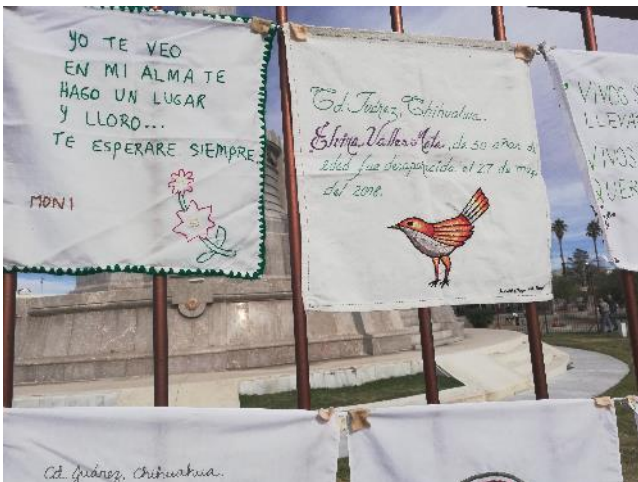 YO TE VEO
EN MI ALMA TE
HAGO UN LUGAR
Y LLORO...
TE ESPERARE SIEMPRE
MONI
Cd. Juárez, Chihuahua.
Elvira Valles Mata, de 50 años de
edad fue desaparecida el 27 de
del 2018.
VIVOS
LLEVA
VIVOS
Cd. Juárez, Chihuahua.